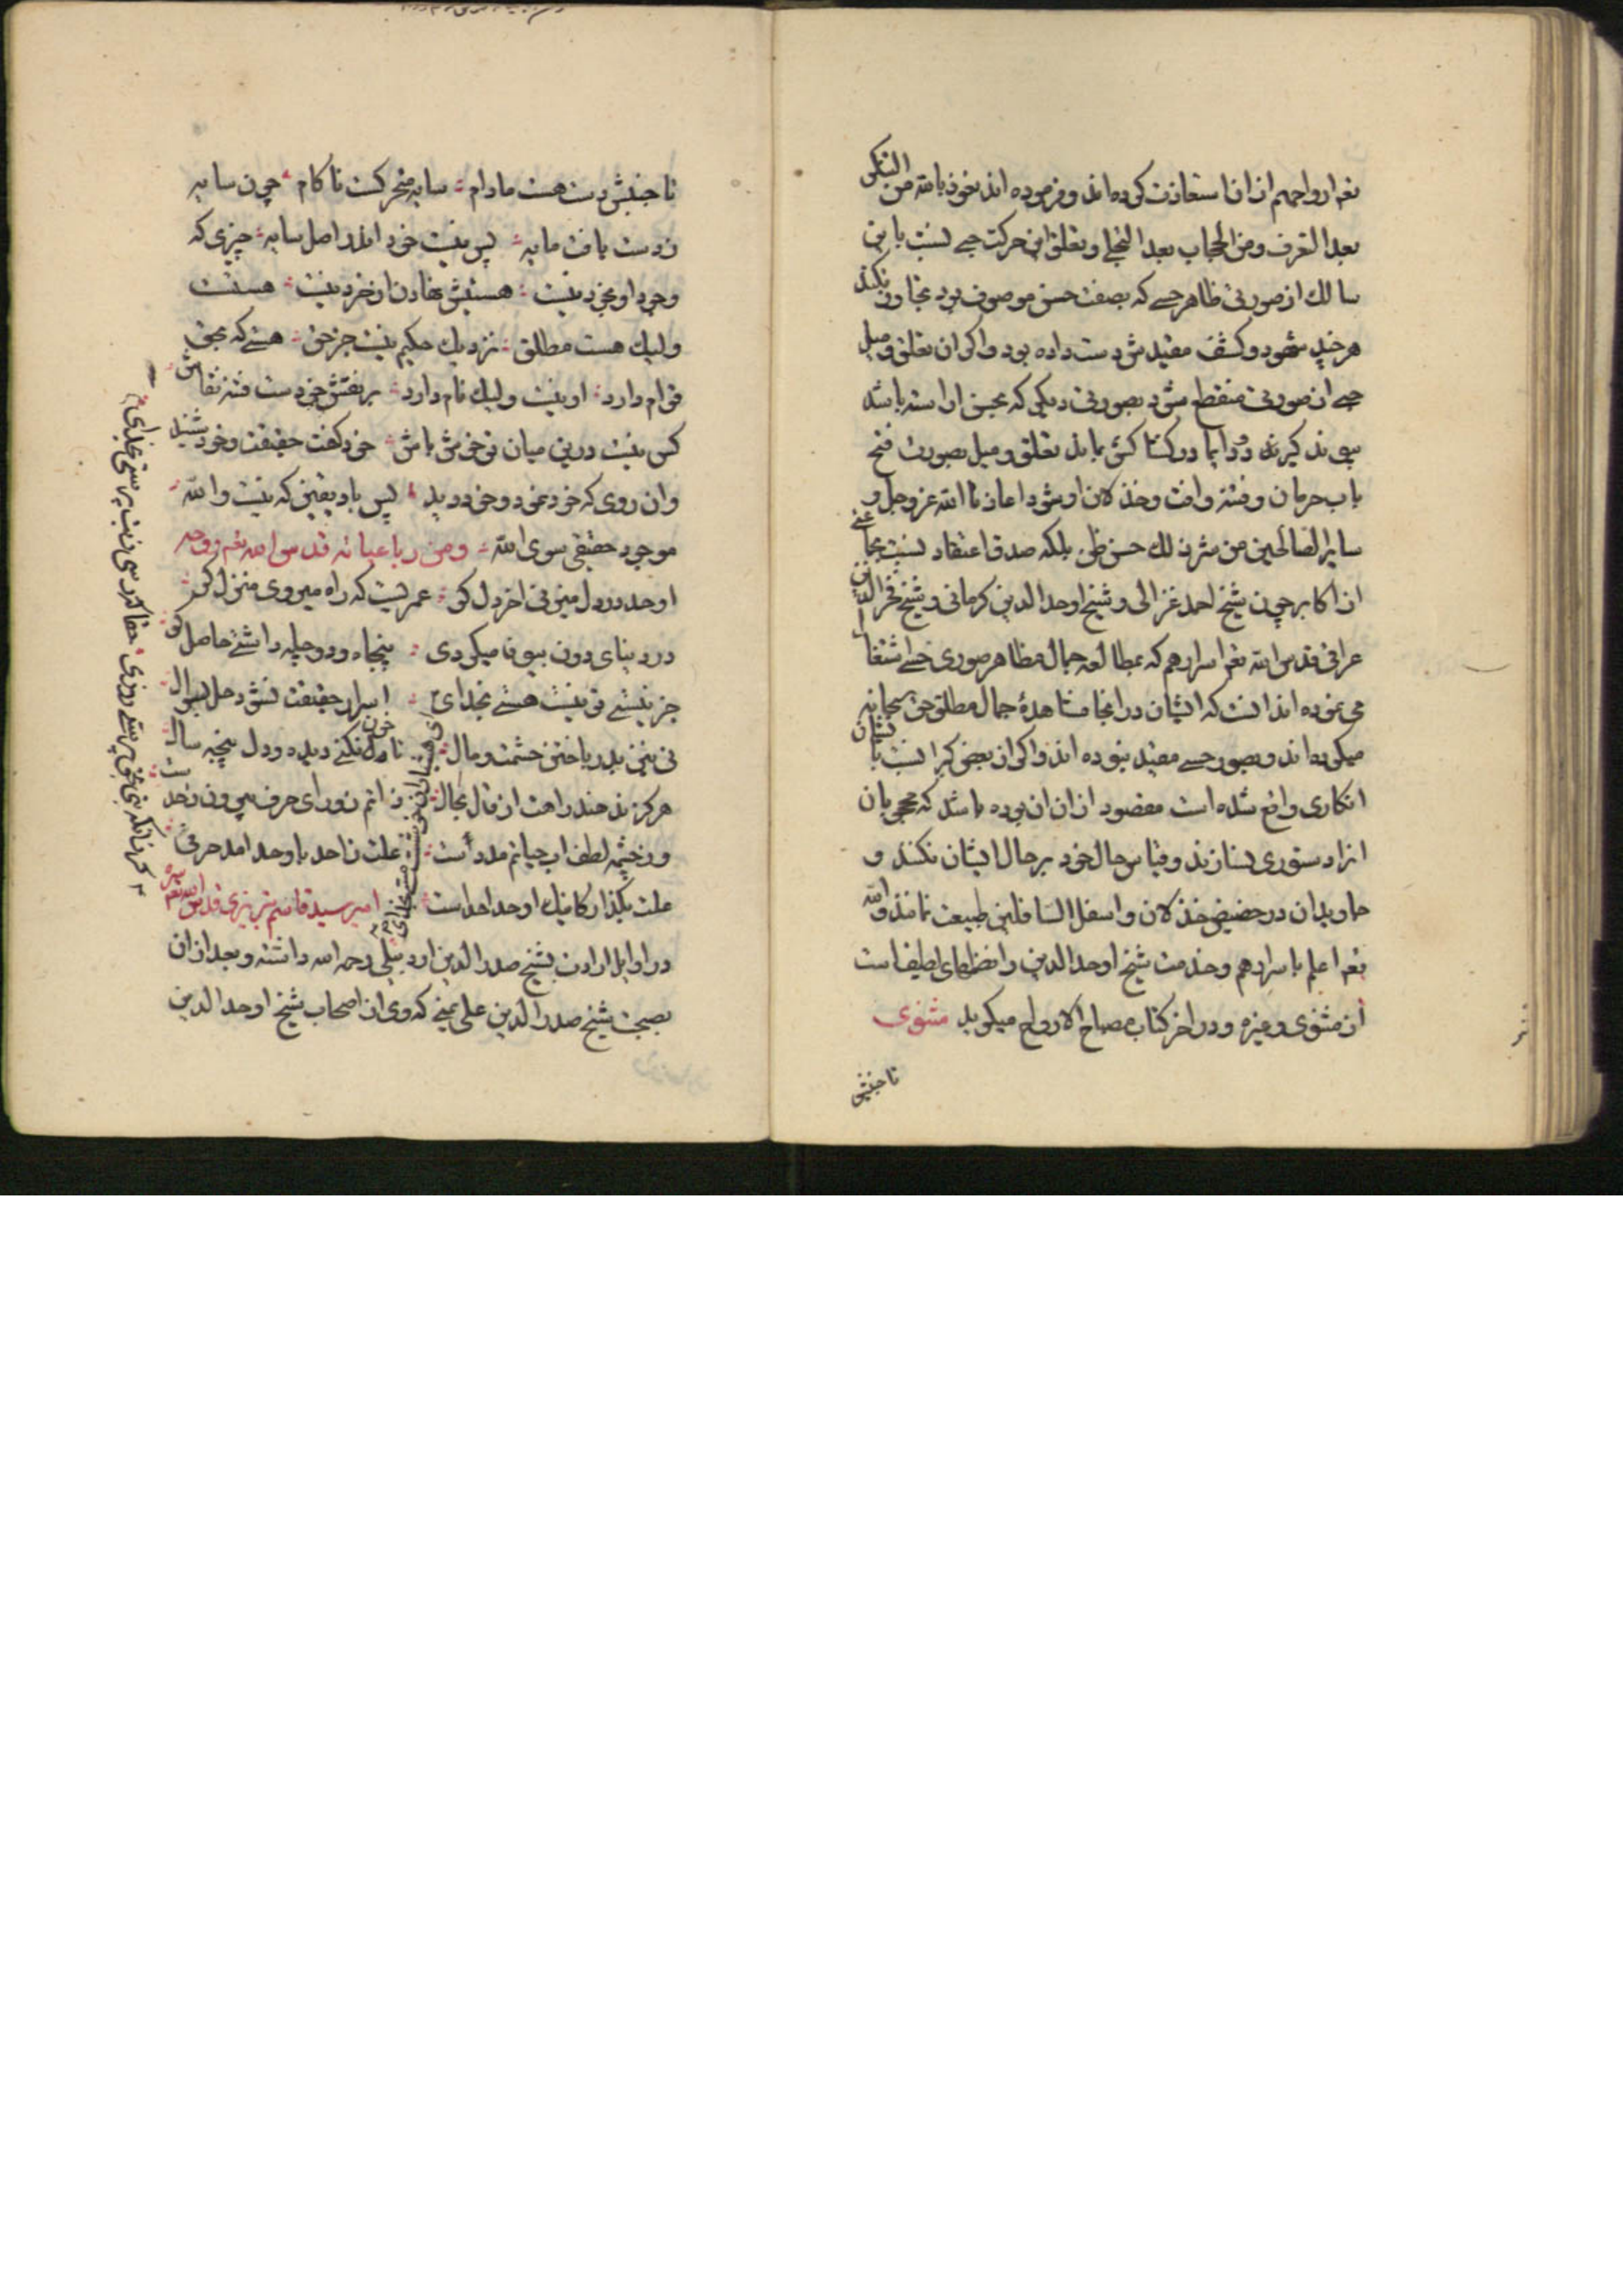 تعم ارواحهم ازان استعاذت کرده اند و فرموده اند نعوذ بالله من التنکر
بعد التعرف و من الحجاب بعد التجلی و تعلق این حرکت حبی نسبت باین
سالک از صورتی ظاهر حسی که بصفت حسن موصوف بود تجاوز نکند
هر چند شهود و کشف مقید ش دست داده بود و اکر ان تعلق و میل
حبی از صورتی منقطع شود بصورتی دیکر که بحسن اراسته باشد
پیوند کیرد و دایما در کشاکش بماند تعلق و میل بصورت فتح
باب حرمان و فتنه و افت و خذلان او شود اعاذنا الله عز و جل و
سایر الصالحین من شر ذلک حسن ظن بلکه صدق اعتقاد نسبت بجماعتی
از اکابر چون شیخ احمد غزالی و شیخ اوحد الدین کرمانی و شیخ فخر الدین
عراقی قدس الله تعم اسرارهم که بمطالعه جمال مظاهر صوری حسی اشتغال
می نموده اند انست که ایشان در انجا مشاهدهٔ جمال مطلق حق سبحانه
میکرده اند و بصور حسی مقید نبوده اند و اکر از بعضی کبرا نسبت بایشان
انکاری واقع شده است مقصود ازان ان بوده باشد که محجوبان
انرا دستوری نسازند و قیاس حال خود بر حال ایشان نکنند و
جاویدان در حضیض خذلان و اسفل السافلین طبیعت نمانند والله
تعم اعلم باسرارهم و خدمت شیخ اوحد الدین را نظمهای لطیف است
از مثنوی و غیره و در اخر کتاب مصباح الارواح میکوید مثنوی
تا جنبش
تا جنبش دست هست مادام سایه متحرکست ناکام چون سایه
ز دست یافت مایه پس نیست خود اندر اصل سایه چیزی که
وجود او بخود نیست هستیش نهادن از خرد نیست هستست
ولیک هست مطلق نزدیک حکیم نیست جز حق هستی که بحق
قوام دارد او نیست ولیک نام دارد بر نقش خودست فتنه نقاش
کس نیست درین میان تو خوش باش خود کفت حقیقت و خود شنید
وان روی که خود نمود و خود دید پس باد یقین که نیست والله
موجود حقیقی سوی الله و من رباعیاته قدس الله تعم روحه
اوحد در دل میزنی اخر دل کو عمریست که راه میروی منزل کو
در دنیای دون بیوفا میکردی پنجاه و دو چله داشتی حاصل کو
جز نیستی تو نیست هستی بخدای اسرار حقیقت نشود حل بسوال
نی نیز بدر باختن حشمت و مال تا خون نکنی دیده و دل پنجه سال
هرکز ندهند راهت از قال بحال ذاتم ز ورای حرف بیرون ز حدست
وز چشمه لطف اب حیاتم مددست علت ز احد باوحد امد حرفی
علت بکذار کاینک اوحد احدست امیر سید قاسم تبریزی قدس الله تعم سره
در اوایل ارادت بشیخ صدر الدین اردبیلی رحمه الله داشته و بعد ازان
بصحبت شیخ صدر الدین علی یمنی که وی از اصحاب شیخ اوحد الدین